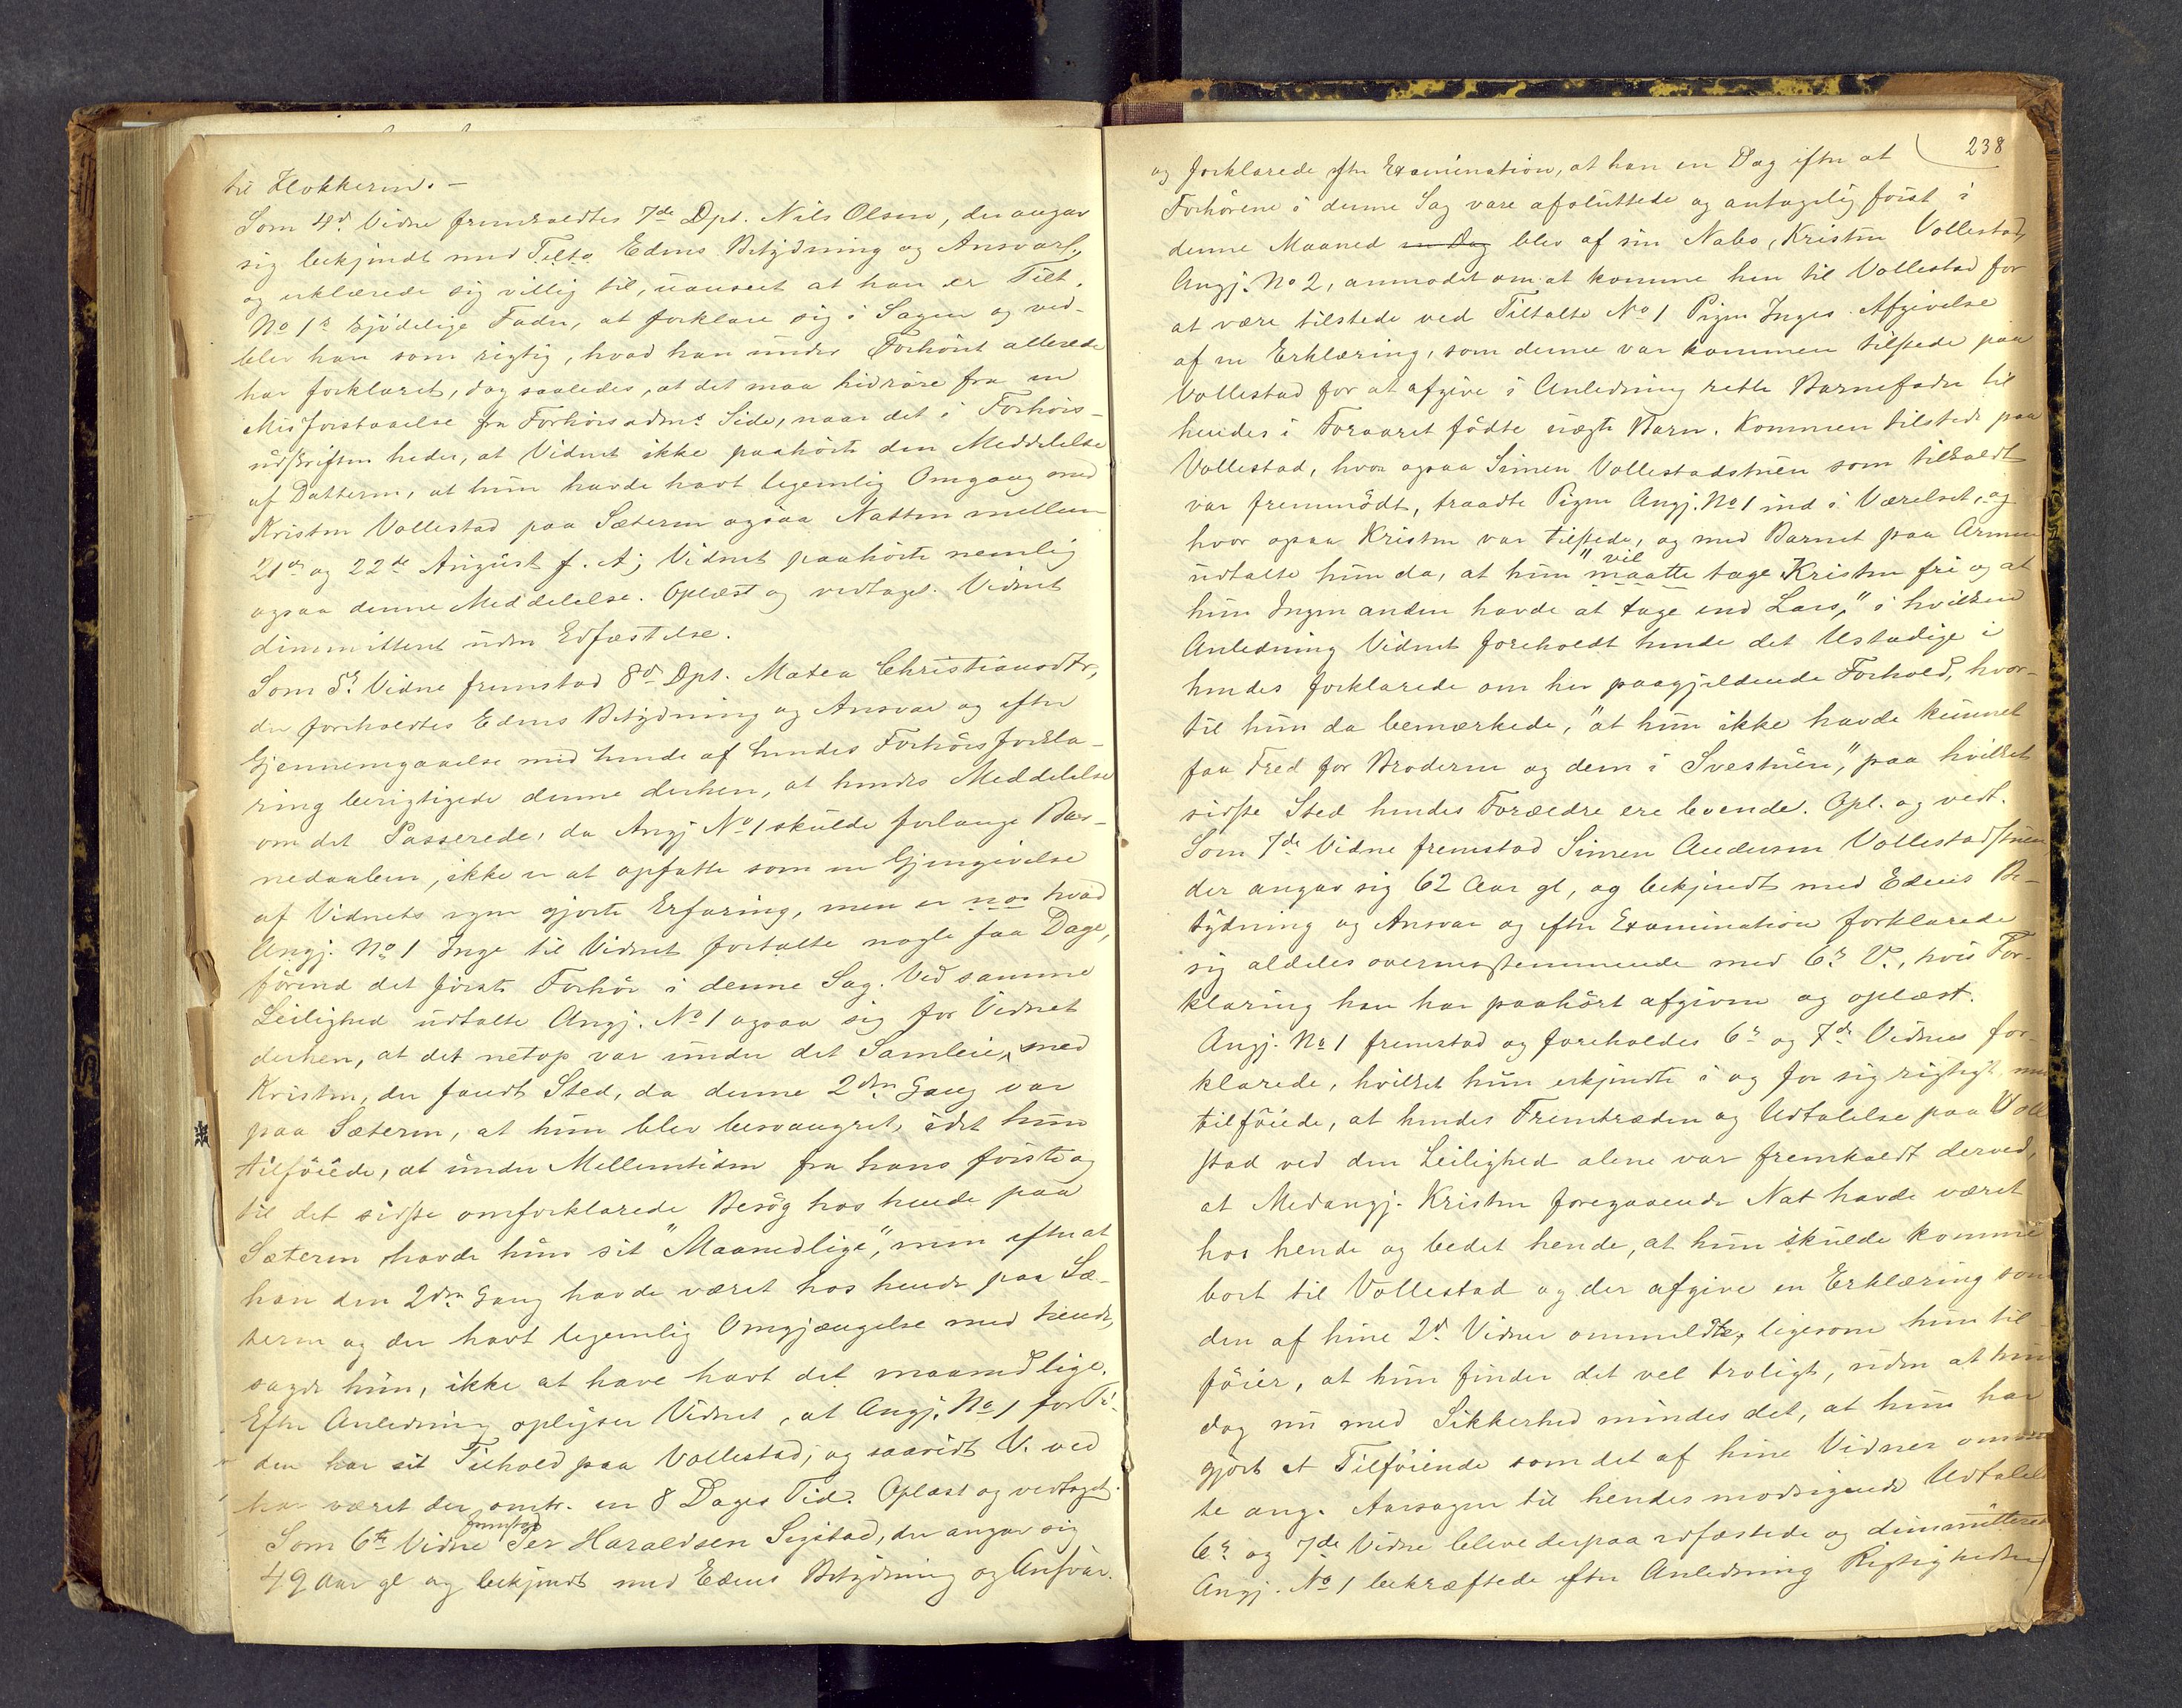 til Klokkeren. —
Som 4de Vidne fremkaldtes 7de Dpt. Nils Olsen, der angav
sig bekjendt med Edens Betydning og Ansvarl.,
og erklærede sig villig til, uanseet at han er Tilt.
No 1s kjødelige Fader, at forklare sig i Sagen og ved-
blev han som rigtig, hvad han under Forhöret allerede
har forklaret, dog saaledes, at det maa hidröre fra en
Misforstaaelse fra Forhörsadms Side, naar det i Forhörs-
udskriften heder, at Vidnet ikke paahörte den Meddelelse
af Datteren, at hun havde havt legemlig Omgang med
Kristen Vollestad paa Sæteren ogsaa Natten mellem
21de og 22de August f. A; Vidnet paahörte nemlig
ogsaa denne Meddelelse. Oplæst og vedtaget. Vidnet
dimmitteret uden Edfæstelse.
Som 5te Vidne fremstod 8de Dpt. Matea Christiansdtr,
der foreholdtes Edens Betydning og Ansvar og efter
Gjennemgaaelse med hende af hendes Forhörsforkla-
ring berigtigede denne derhen, at hendes Meddelelse
om det Passerede, da Angj No 1 skulde forlange Bar-
nedaaben, ikke er at opfatte som en Gjengivelse
af Vidnets egen gjorte Erfaring, men er hvad
Angj. No 1 Inge til Vidnet fortalte nogle faa Dage,
förend det förste Forhör i denne Sag. Ved samme
Leilighed udtalte Angj. No 1 ogsaa sig for Vidnet
derhen, at det netop var under det Samleie, med
Kristen, der fandt Sted, da denne 2den Gang var
paa Sæteren, at hun blev besvangret, idet hun
tilföiede, at under Mellemtiden fra hans förste og
til det sidste omforklarede Besög hos hende paa
Sæteren havde hun sit "Maanedlige", men efter at
han den 2den Gang havde været hos hende paa Sæ-
teren og der havt legemlig Omgjængelse med hende,
sagde hun, ikke at have havt det maanedlige.
Efter Anledning oplyser Vidnet, at Angj. No 1 for Ti-
den har sit Tilhold paa Vollestad, og saavidt V. ved
har været der omtr. en 8 Dages Tid. Oplæst og vedtaget.
Som 6te Vidne fremstod Per Haraldsen Sigstad, der angav sig
49 Aar gl og bekjendt med Edens Betydning og Ansvar.
238
og forklarede efter Examination, at han en Dag efter at
Forhörene i denne Sag vare afsluttede og antagelig först i
denne Maaned en Dag blev af sin Nabo, Kristen Vollestad,
Angj. No 2, anmodet om at komme hen til Vollestad for
at være tilstede ved Tiltalte No 1 Pigen Inges Afgivelse
af en Erklæring, som denne var kommen tilstede paa
Vollestad for at afgive i Anledning rette Barnefader til
hendes i Foraaret födte uægte Barn. Kommen tilstede paa
Vollestad, hvor ogsaa Simen Vollestadstuen som tilkaldt
var fremmödt, traadte Pigen Angj. No 1 ind i Værelset, og
hvor ogsaa Kristen var tilstede, og med Barnet paa Armen
udtalte hun da, at hun "vil maatte tage Kristen fri og at
hun Ingen anden havde at tage end Lars," i hvilken
Anledning Vidnet foreholdt hende det Ustadige i
hendes forklarede om her paagjeldende Forhold, hvor-
til hun da bemærkede, "at hun ikke havde kunnet
faa Fred for Broderen og dem i Svestuen", paa hvilket
sidste Sted hendes Forældre ere boende. Opl. og vedt.
Som 7de Vidne fremstod Simen Andersen Vollestadstuen
der angav sig 62 Aar gl, og bekjendt med Edens Be-
tydning og Ansvar og efter Examination forklarede
sig aldeles overensstemmende med 6te V., hvis For-
klaring han har paahört afgiven og oplæst.
Angj. No 1 fremstod og foreholdes 6te og 7de Vidnes for-
klarede, hvilket hun erkjendte i og for sig rigtigt men
tilföiede, at hendes Fremtræden og Udtalelse paa Volle-
stad ved den Leilighed alene var fremkaldt derved,
at Medangj. Kristen foregaaende Nat havde været
hos hende og bedet hende, at hun skulde komme
bort til Vollestad og der afgive en Erklæring som
den af hine 2de Vidner ommeldte, ligesom hun til-
föier, at hun finder det vel troligt, uden at hun
dog nu med Sikkerhed mindes det, at hun har
gjort et Tilföiende som det af hine Vidner
te ang. Aarsagen til hendes modsigende Udtalelse
6te og 7de Vidne bleve derpaa edfæstede og dimmitteret
Angj. No 1 bekræftede efter Anledning Rigtigheden